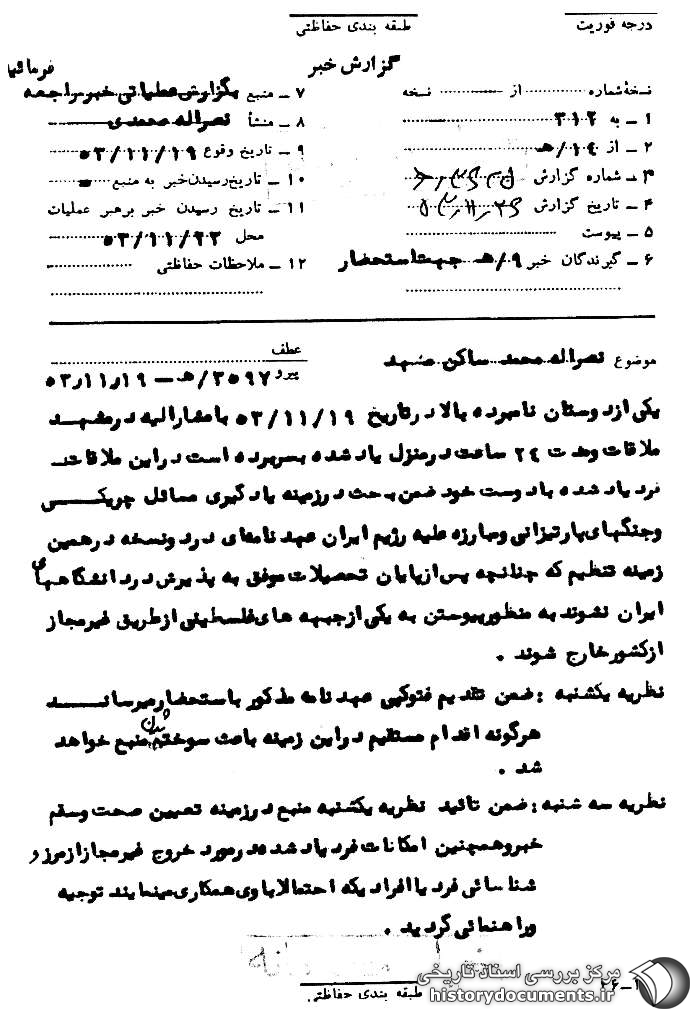 درجه فوریت
طبقه بندی حفاظتی
گزارش خبر
نسخهٔ شماره ............ از ............ نسخه
۱ ـ به ۳۱۲
۲ ـ از ۱٤/هـ
۳ ـ شماره گزارش
۴ ـ تاریخ گزارش
۵ ـ پیوست
۶ ـ گیرندگان خبر ۹/هـ جهت استحضار
۷ ـ منبع بگزارش عملیاتی خبر مراجعه فرمائید
۸ ـ منشأ نصراله محمدی
۹ ـ تاریخ وقوع ۵۳/۱۱/۱۹
۱۰ ـ تاریخ رسیدن خبر به منبع ـ
۱۱ ـ تاریخ رسیدن خبر برهبر عملیات
محل ۵۳/۱۱/۲۲
۱۲ ـ ملاحظات حفاظتی
موضوع نصراله محمد ساکن مشهد
عطف
پیرو ۲۵۹۷/هـ ـ ۵۳٫۱۱٫۱۹
یکی از دوستان نامبرده بالا در تاریخ ۵۳/۱۱/۱۹ با مشارالیه در مشهد
ملاقات و مدت ۲٤ ساعت در منزل یاد شده بسر برده است در این ملاقات
فرد یاد شده با دوست خود ضمن بحث در زمینه یادگیری مسائل چریکی
و جنگهای پارتیزانی و مبارزه علیه رژیم ایران عهدنامه‌ای در دو نسخه در همین
زمینه تنظیم که چنانچه پس از پایان تحصیلات موفق به پذیرش در دانشگاههای
ایران نشوند به منظور پیوستن به یکی از جبهه های فلسطینی از طریق غیر مجاز
از کشور خارج شوند .
نظریه یکشنبه : ضمن تقدیم فتوکپی عهدنامه مذکور باستحضار میرساند
هرگونه اقدام مستقیم در این زمینه باعث سوخته شدن منبع خواهد
شد .
نظریه سه شنبه : ضمن تائید نظریه یکشنبه منبع در زمینه تعیین صحت و سقم
خبر و همچنین امکانات فرد یاد شده در مورد خروج غیر مجاز از مرز و
شناسائی فرد یا افرادیکه احتمالا با وی همکاری مینمایند توجیه
و راهنمائی گردید .
طبقه بندی حفاظتی
مرکز بررسی اسناد تاریخی
historydocuments.ir